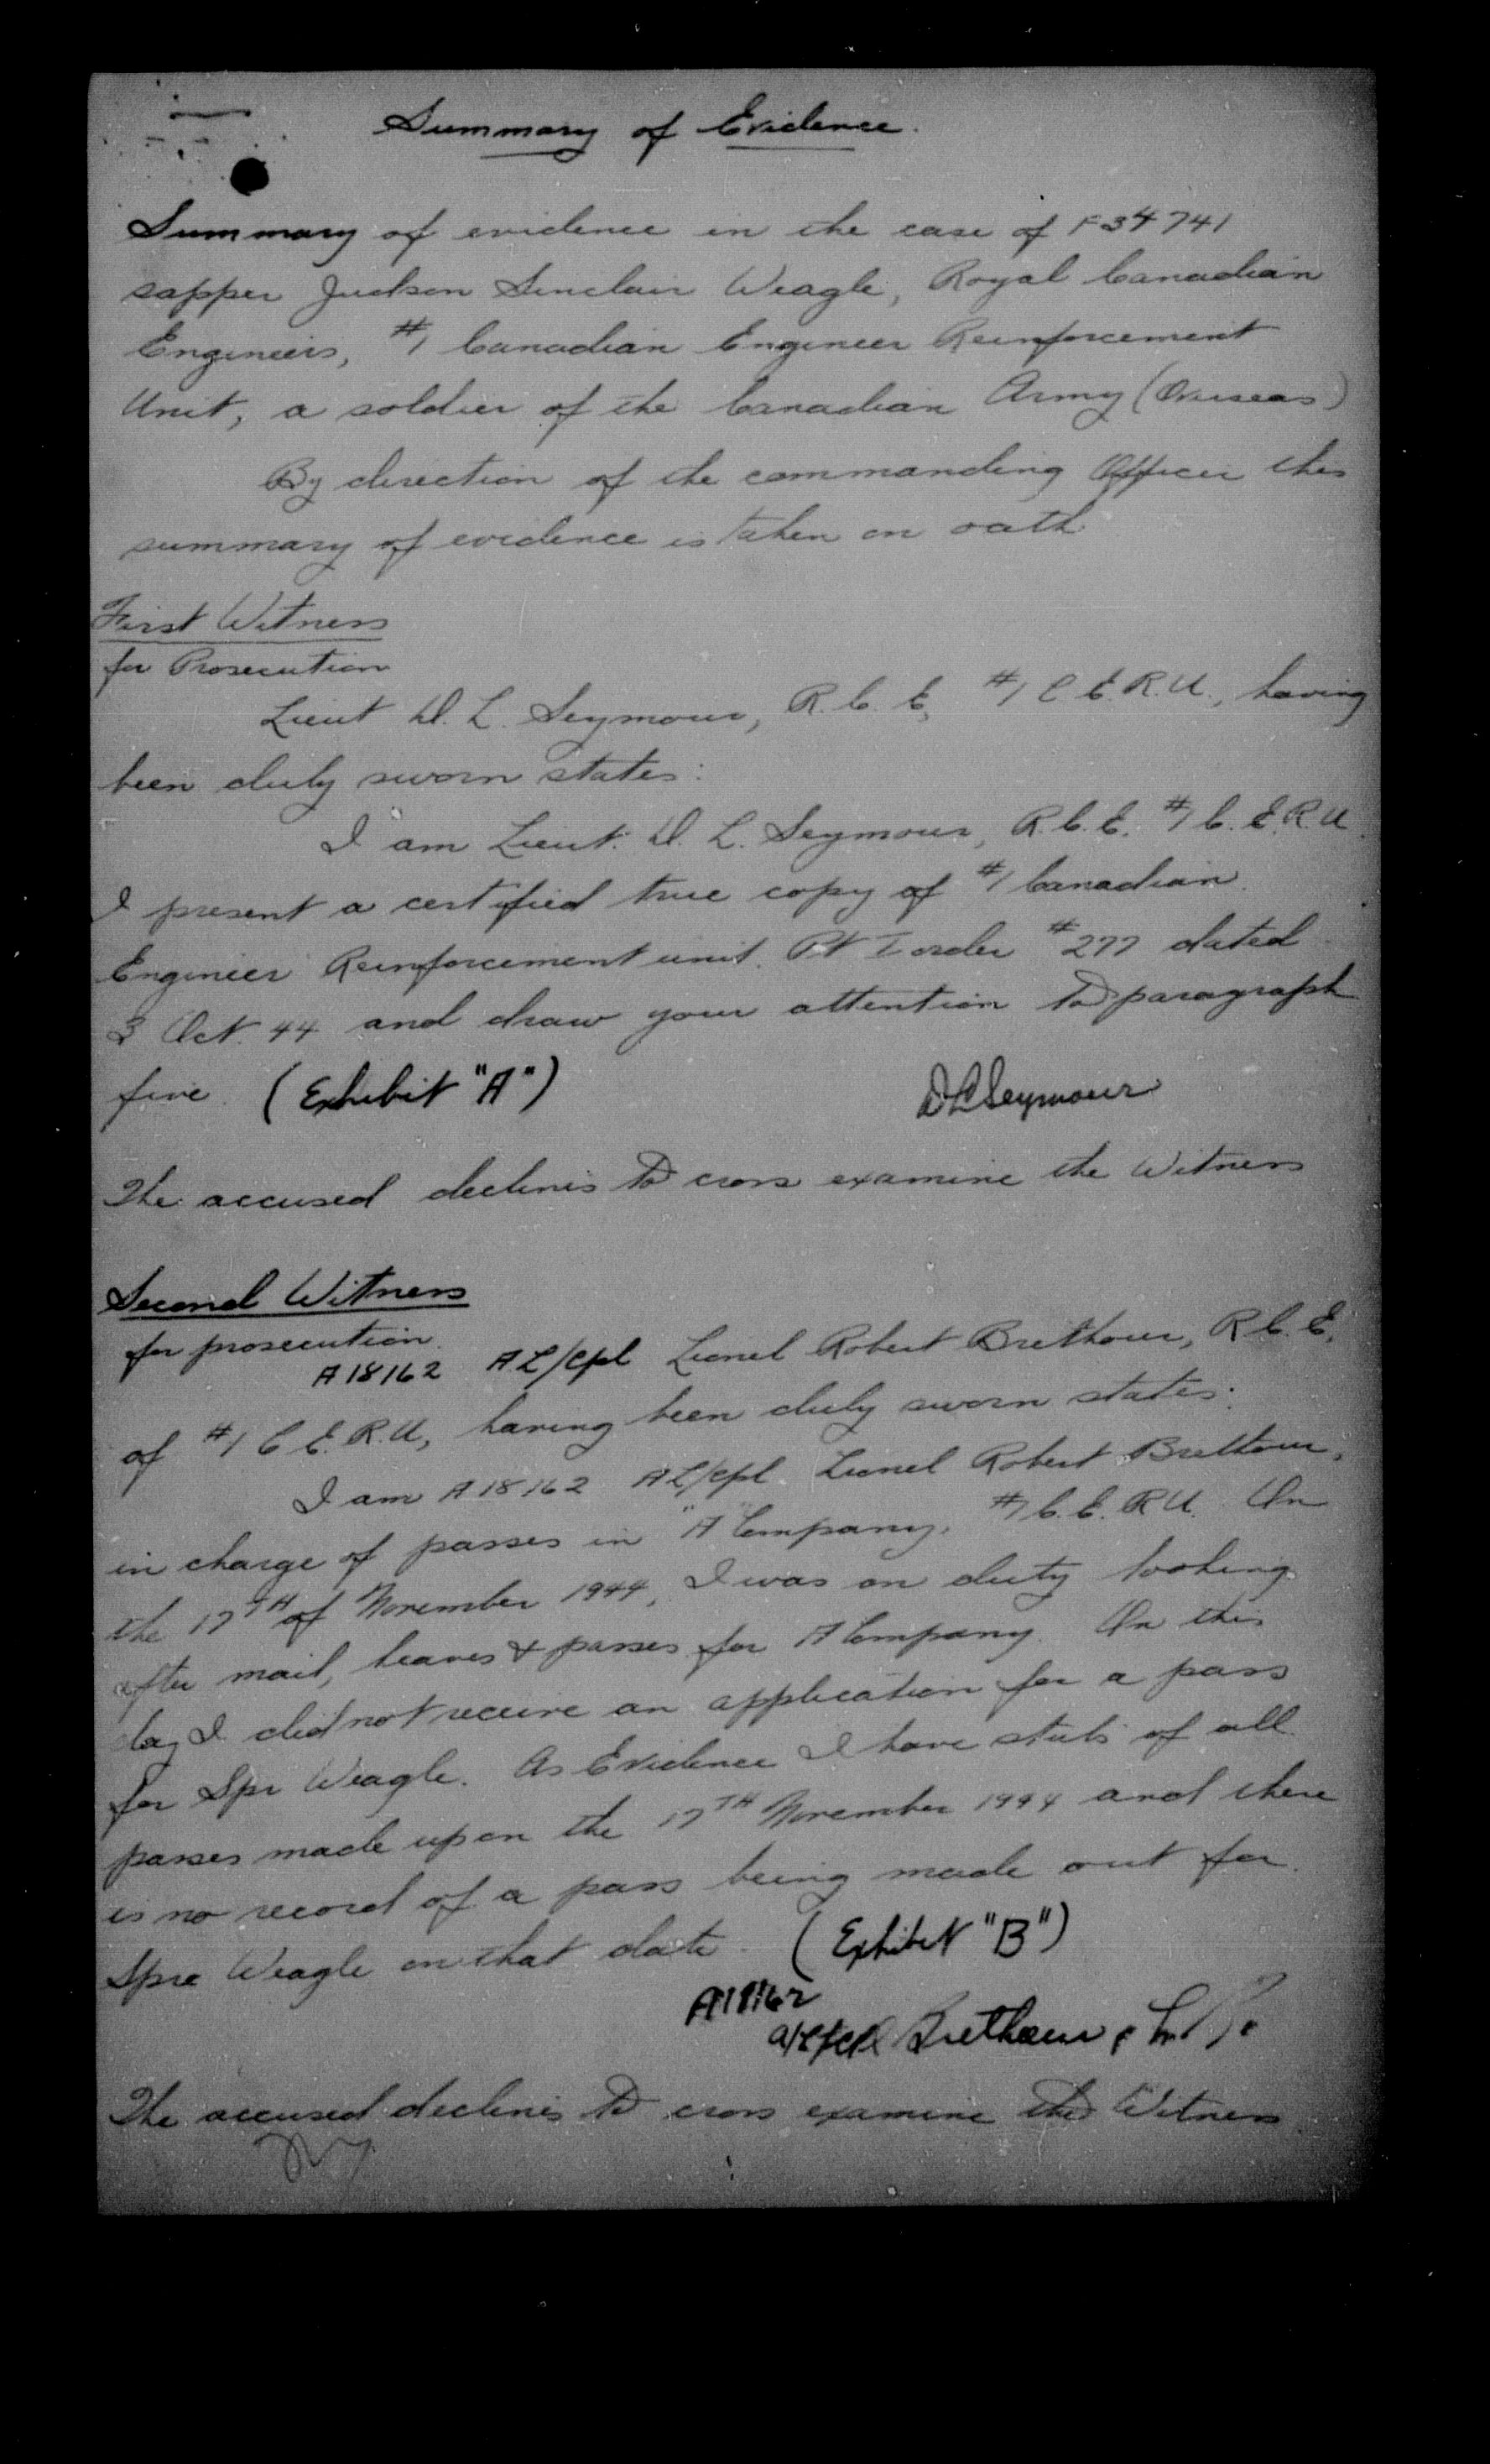 Summary of Evidence.
Summary of evidence in the case of F34741
sapper Judson Sinclair Weagle, Royal Canadian
Engineers, #1 Canadian Engineer Reinforcement
Unit, a soldier of the Canadian Army (Overseas)
By direction of the commanding Officer this
summary of evidence is taken on oath
First Witness
for Prosecution
Lieut D. L. Seymour, R.C.E, #1 C.E.R.U., having
been duly sworn states:
I am Lieut. D. L. Seymour, R.C.E. #1 C.E.R.U.
I present a certified true copy of #1 Canadian
Engineer Reinforcement unit. Pt I order #277 dated
3 Oct. 44 and draw your attention to paragraph
five. (Exhibit "A")
D L Seymour
The accused declines to cross examine the Witness
Second Witness
for prosecution.
A18162 A L/Cpl Lionel Robert Brethour, R.C.E.
of #1 C.E.R.U, having been duly sworn states:
I am A18162 A L/Cpl Lionel Robert Brethour,
in charge of passes in "A" Company, #1 C.E.R.U. On
the 17TH of November 1944, I was on duty looking
after mail, leaves & passes for A Company. On this
day I did not receive an application for a pass
for Spr Weagle. As Evidence I have stubs of all
passes made up on the 17TH November 1944 and there
is no record of a pass being made out for
Spr Weagle on that date. (Exhibit "B")
A18162
a/L/Cpl Brethour, L.R.
The accused declines to cross examine the Witness